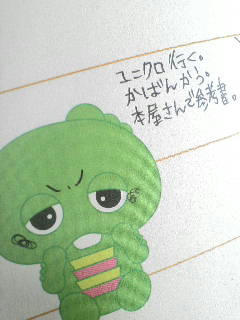 ユニクロ行く。
かばんかう。
本屋さんで参考書。